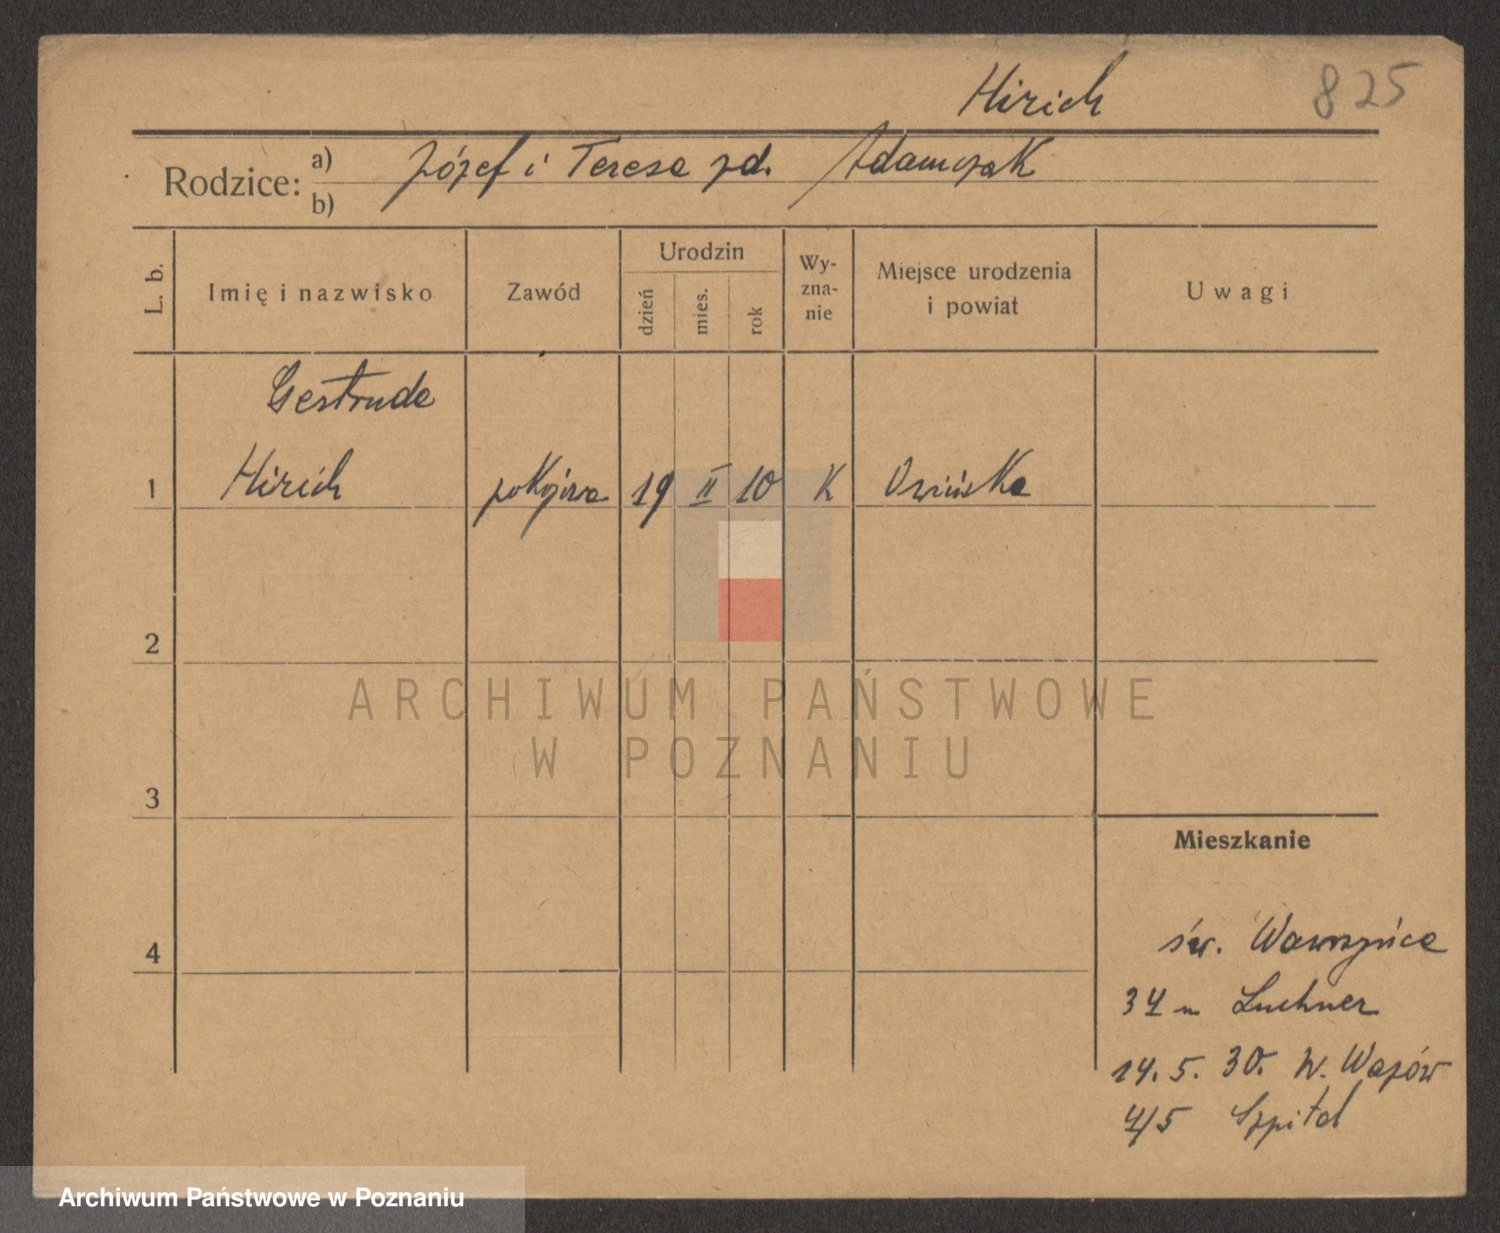 Hirich 825
Rodzice: a) Józef i Teresa zd. Adamczak
b)
L. b. Imię i nazwisko Zawód Urodzin dzień mies. rok Wyznanie Miejsce urodzenia i powiat Uwagi
Gertrude
1 Hirich pokojowa 19 II 10 K Owińska
2
ARCHIWUM PAŃSTWOWE
W POZNANIU
3
Mieszkanie
4
św. Wawrzyńca
34 Luchner
14. 5. 30. W. Wazów
4/5 Szpital
Archiwum Państwowe w Poznaniu